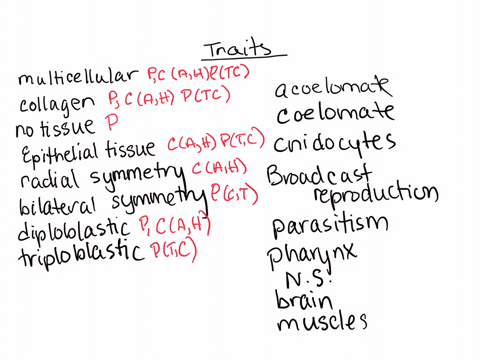 Traits
multicellular P,C(A,H)P(TC)
collagen P,C(A,H) P(TC)
no tissue P
Epithelial tissue C(A,H) P(T,C)
radial symmetry C(A,H)
bilateral symmetry P(C,T)
diploblastic P,C(A,H)
triploblastic P(T,C)
acoelomate
coelomate
cnidocytes
Broadcast
reproduction
parasitism
pharynx
N.S.
brain
muscles